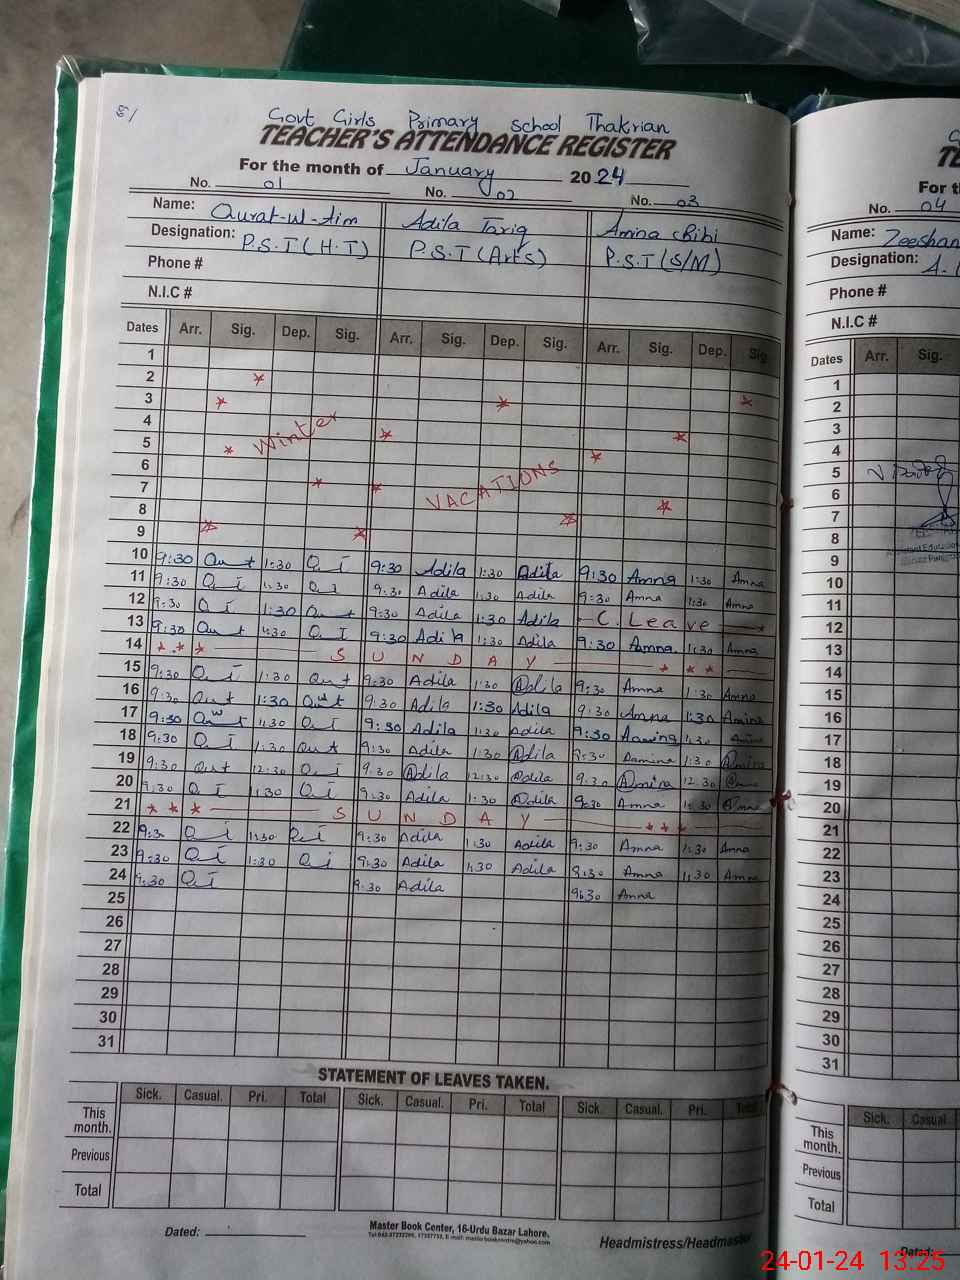 Govt Girls Primary School Thakrian
TEACHER'S ATTENDANCE REGISTER
For the month of January 2024
No. 01 No. 02 No. 03
Name: Qurat-ul-Aim Adila Tariq Amina Bibi
Designation: P.S.T (H.T) P.S.T (Arts) P.S.T (S/M)
Phone #
N.I.C #
Dates Arr. Sig. Dep. Sig. Arr. Sig. Dep. Sig. Arr. Sig. Dep. Sig.
1
2
3
4
5
Winter
6
7
VACATIONS
8
9
10 9:30 Qurt 1:30 Q i 9:30 Adila 1:30 Adila 9:30 Amna 1:30 Amna
11 9:30 Q i 1:30 Q i 9:30 Adila 1:30 Adila 9:30 Amna 1:30 Amna
12 9:30 Q i 1:30 Qurt 9:30 Adila 1:30 Adila C. Leave
13 9:30 Qurt 1:30 Q i 9:30 Adila 1:30 Adila 9:30 Amna 1:30 Amna
14 S U N D A Y
15 9:30 Q i 1:30 Qurt 9:30 Adila 1:30 Adila 9:30 Amna 1:30 Amna
16 9:30 Qurt 1:30 Qurt 9:30 Adila 1:30 Adila 9:30 Amna 1:30 Amina
17 9:30 Qurt 1:30 Q i 9:30 Adila 1:30 Adila 9:30 1:30
18 9:30 Q i 1:30 Qut 9:30 Adila 1:30 Adila 9:30 Aamina 1:30 Amina
19 9:30 Qurt 12:30 Q i 9:30 Adila 12:30 Adila 9:30 Amina 12:30
20 9:30 Q i 1:30 Q i 9:30 Adila 1:30 Adila 9:30 Amna 1:30 Amna
21 S U N D A Y
22 9:30 Q i 1:30 Q i 9:30 Adila 1:30 Adila 9:30 Amna 1:30 Amna
23 9:30 Q i 1:30 Q i 9:30 Adila 1:30 Adila 9:30 Amna 1:30 Amna
24 9:30 Q i 9:30 Adila 9:30 Amna
25
26
27
28
29
30
31
STATEMENT OF LEAVES TAKEN.
Sick. Casual. Pri. Total Sick. Casual. Pri. Total Sick. Casual. Pri. Total
This month.
Previous
Total
Dated:
Master Book Center, 16-Urdu Bazar Lahore.
Headmistress/Headmaster
For th
No. 04
Name: Zeeshan
Designation: A.
Phone #
N.I.C #
Dates Arr. Sig.
1
2
3
4
5
6
7
8
9
10
11
12
13
14
15
16
17
18
19
20
21
22
23
24
25
26
27
28
29
30
31
Sick. Casual
This month.
Previous
Total
Dated:
24-01-24 13:25